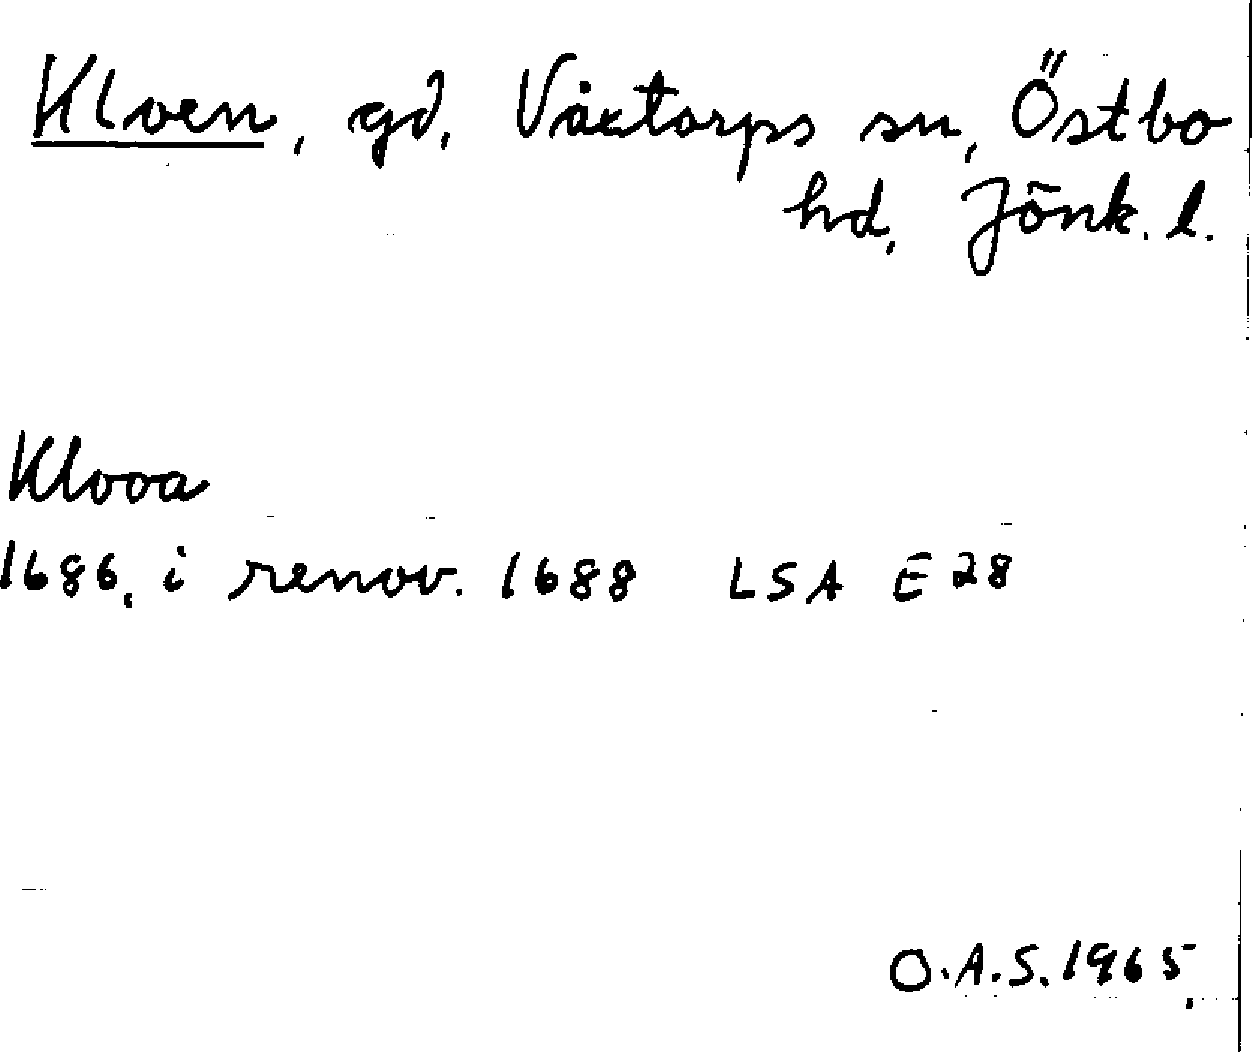 Kloen, gd, Våxtorps sn, Östbo
hd, Jönk. l.
Klooa
1686, i renov. 1688 LSA E28
O.A.S. 1965.